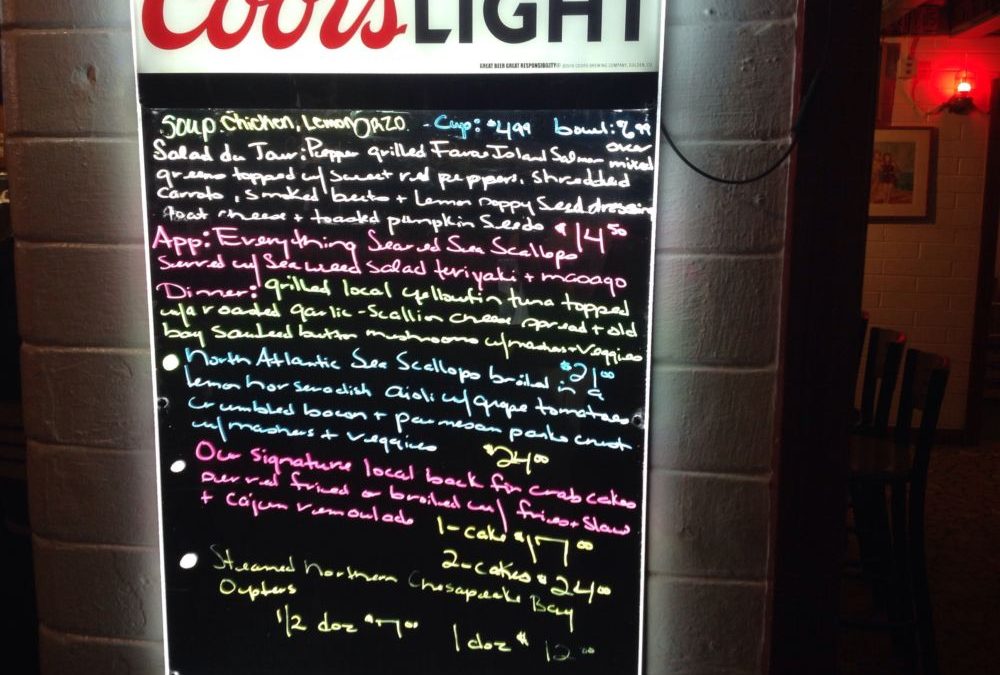 Coors LIGHT
GREAT BEER GREAT RESPONSIBILITY® ©2014 COORS BREWING COMPANY, GOLDEN, CO
Soup: Chicken, Lemon Orzo - Cup: $4.99 bowl:
Salad du Jour: Pepper grilled Faroe Island Salmon over mixed
greens topped w/ sweet red peppers, shredded
carrots, smoked beets + Lemon Poppy Seed dressing
goat cheese + toasted pumpkin seeds $14.50
App: Everything Seared Sea Scallops
served w/ Seaweed salad teriyaki +
Dinner: grilled local yellowfin tuna topped
w/a roasted garlic-Scallion cheese spread + old
bay sauteed button mushrooms w/mashers + Veggies
$21.00
North Atlantic Sea Scallops broiled in a
lemon horseradish aioli w/ grape tomatoes
crumbled bacon + parmesan panko crust
w/mashers + veggies $24.00
Our signature local back fin crab cakes
served fried or broiled w/ fries + slaw
+ cajun remoulade 1-cake $17.00
2-cakes $24.00
Steamed Northern Chesapeake Bay
Oysters
1/2 doz $7.00 1 doz $12.00